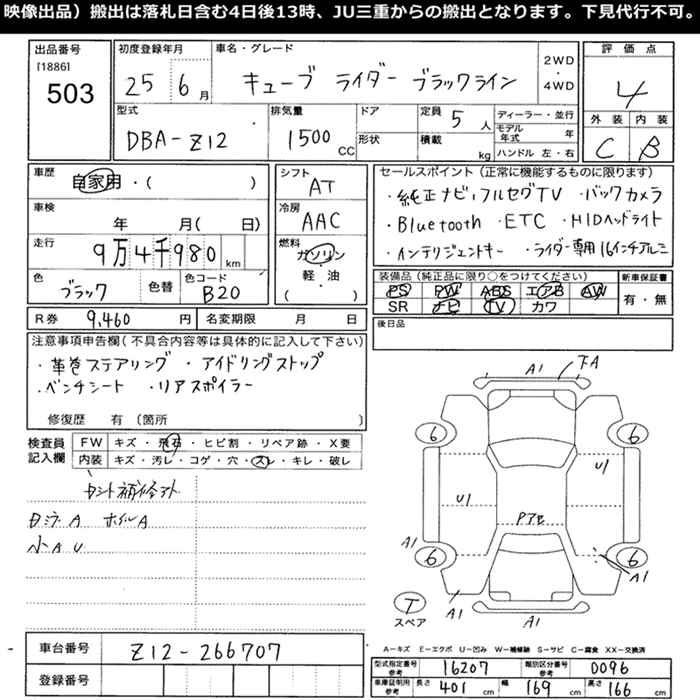 映像出品）搬出は落札日含む4日後13時、JU三重からの搬出となります。下見代行不可。
出品番号
[1886]
503
初度登録年月
25 6月
車名・グレード
キューブ ライダー ブラックライン
2WD
・
4WD
評価点
4
外装 内装
C B
型式
DBA-Z12
排気量
1500 CC
ドア
形状
定員 5人
積載 kg
ディーラー・並行
モデル年式 年
ハンドル 左・右
車歴
自家用・( )
車検
年 月( 日)
走行
9万4千980 km
色
ブラック
色替
色コード
B20
シフト
AT
冷房
AAC
燃料
ガソリン
軽・油
( )
セールスポイント（正常に機能するものに限ります）
・純正ナビ,フルセグTV ・バックカメラ
・Bluetooth ・ETC ・HIDヘッドライト
・インテリジェントキー ・ライダー専用16インチアルミ
装備品（純正品に限り○をつけてください）
PS PW ABS エアB AW
SR ナビ TV カワ
新車保証書
有・無
後日品
R券 9,460 円
名変期限 月 日
注意事項申告欄（不具合内容等は具体的に記入して下さい）
・革巻ステアリング ・アイドリングストップ
・ベンチシート ・リアスポイラー
修復歴 有（箇所 ）
検査員
記入欄
FW キズ・飛石・ヒビ割・リペア跡・X要
内装 キズ・汚レ・コゲ・穴・スレ・キレ・破レ
ホイルA
小AU
A1
下A
6
6
U1
U1
Pアセ
A1
6
6
A1
A1
A1
T
スペア
車台番号 Z12-266707
登録番号
A－キズ E－エクボ U－凹み W－補修跡 S－サビ C－腐食 XX－交換済
型式指定番号 参考 16207 類別区分番号 参考 0096
車庫証明用 参考 長さ 401 cm 幅 169 cm 高さ 166 cm